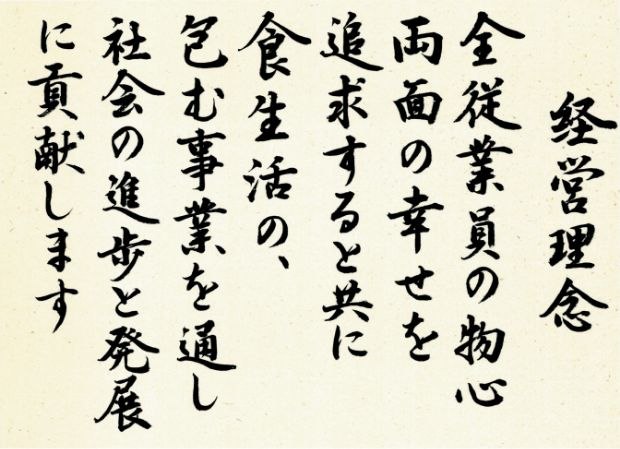 経営理念
全従業員の物心
両面の幸せを
追求すると共に
食生活の、
包む事業を通し
社会の進歩と発展
に貢献します